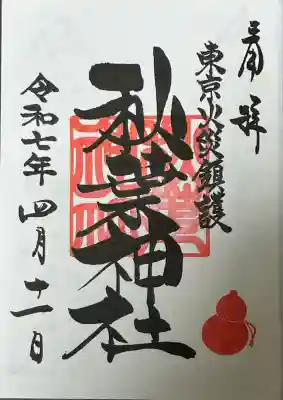 奉拝
東京火災鎮護
秋葉神社
令和七年四月十一日